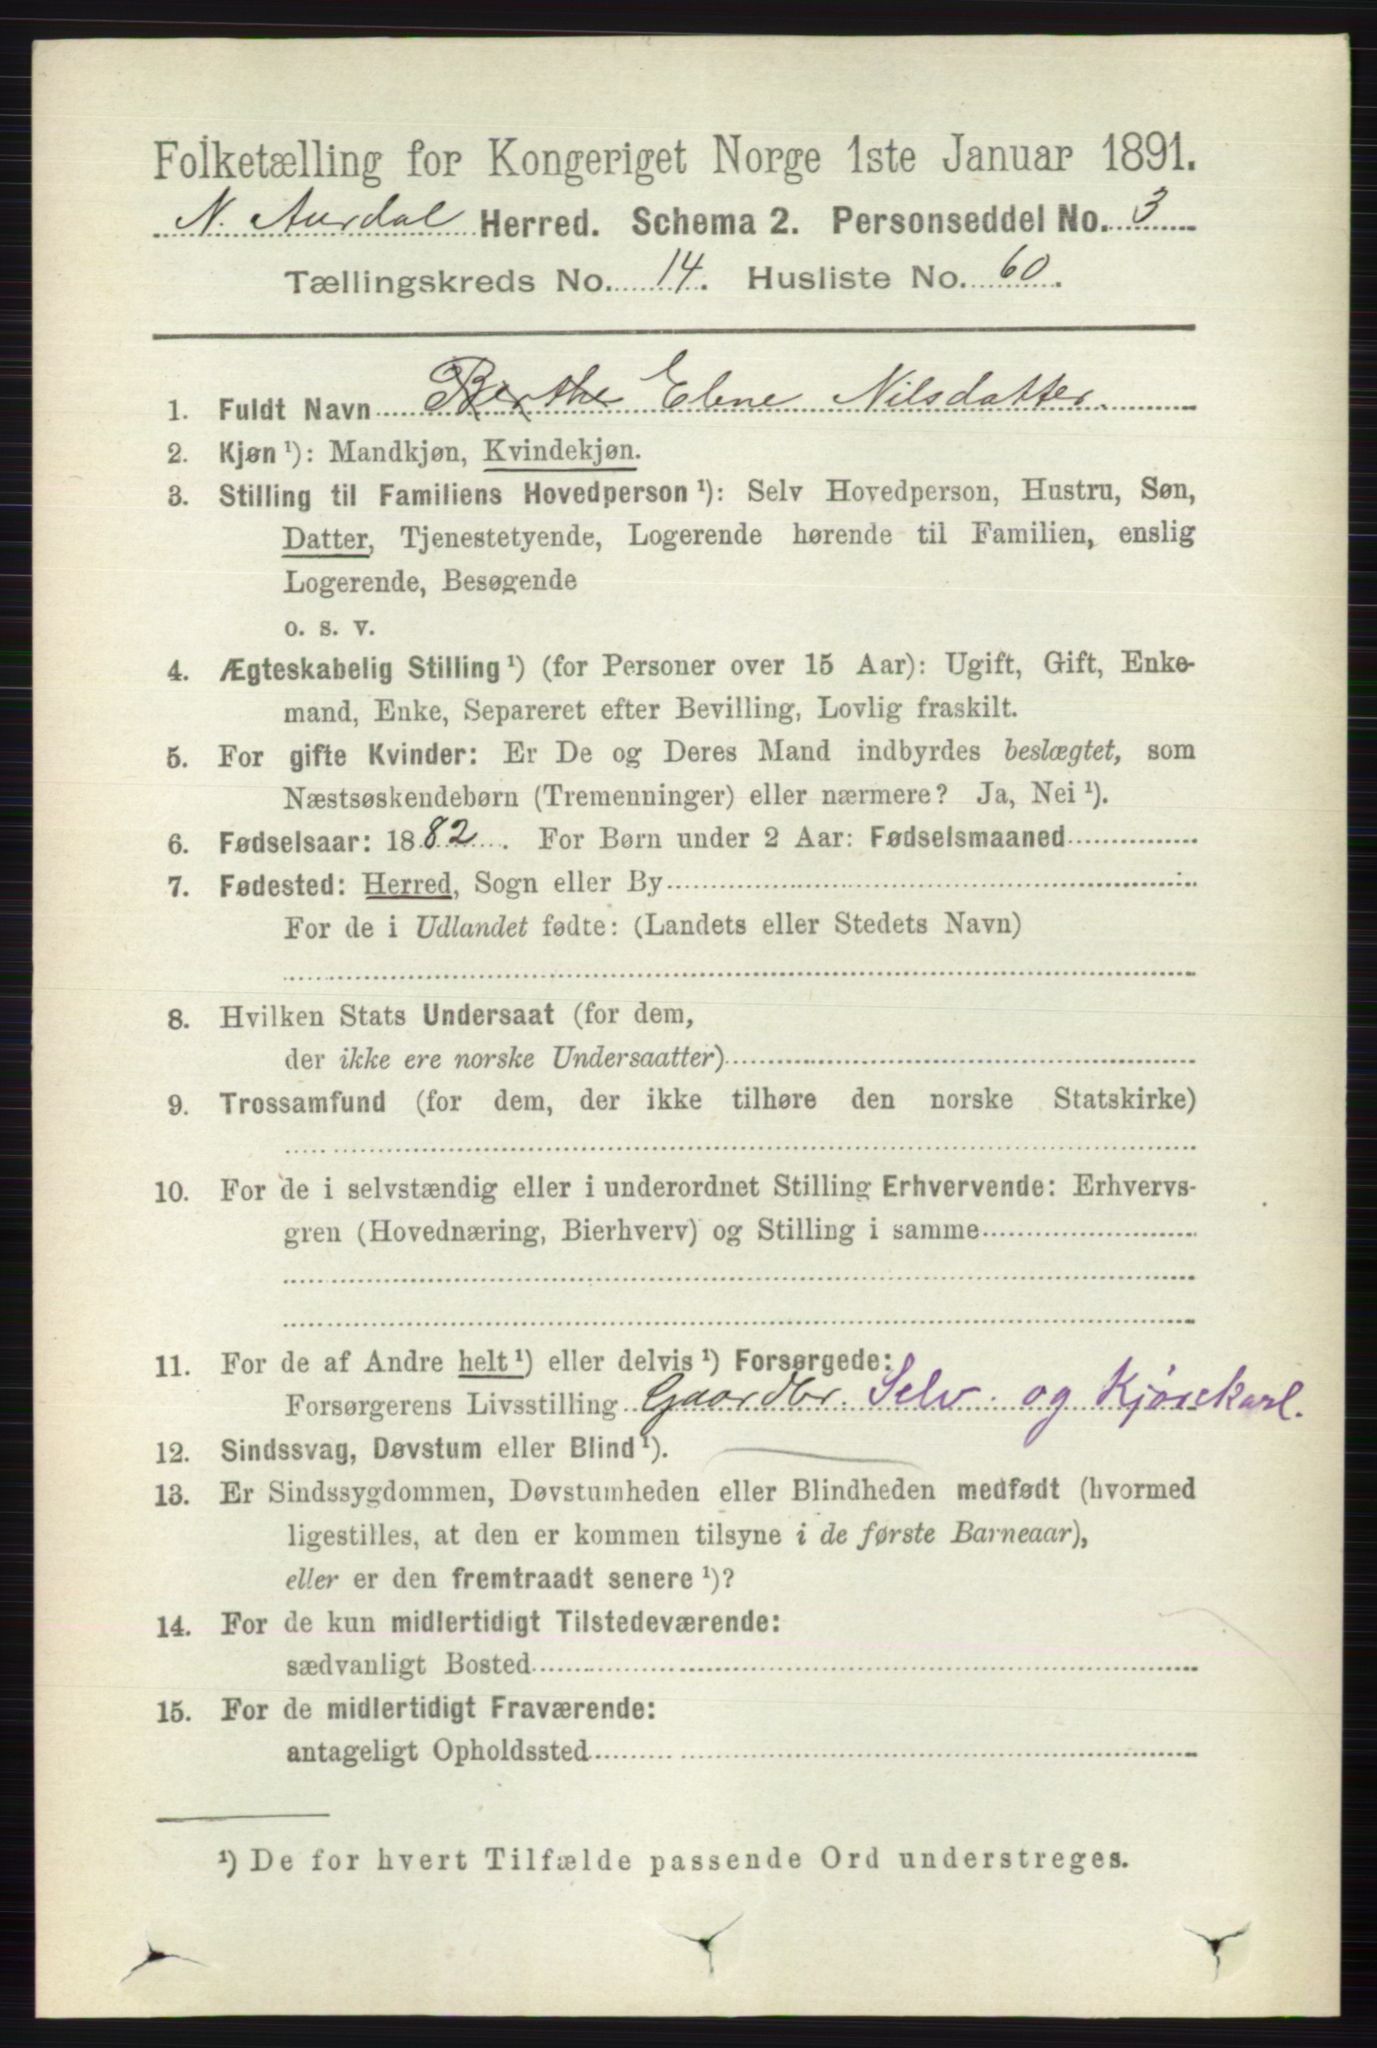 Folketælling for Kongeriget Norge 1ste Januar 1891.
N. Aurdal Herred. Schema 2. Personseddel No. 3
Tællingskreds No. 14. Husliste No. 60.
1. Fuldt Navn Berthe Elene Nilsdatter.
2. Kjøn ¹): Mandkjøn, Kvindekjøn.
3. Stilling til Familiens Hovedperson ¹): Selv Hovedperson, Hustru, Søn,
Datter, Tjenestetyende, Logerende hørende til Familien, enslig
Logerende, Besøgende
o. s. v.
4. Ægteskabelig Stilling ¹) (for Personer over 15 Aar): Ugift, Gift, Enke-
mand, Enke, Separeret efter Bevilling, Lovlig fraskilt.
5. For gifte Kvinder: Er De og Deres Mand indbyrdes beslægtet, som
Næstsøskendebørn (Tremenninger) eller nærmere? Ja, Nei ¹).
6. Fødselsaar: 1882. For Børn under 2 Aar: Fødselsmaaned
7. Fødested: Herred, Sogn eller By
For de i Udlandet fødte: (Landets eller Stedets Navn)
8. Hvilken Stats Undersaat (for dem,
der ikke ere norske Undersaatter)
9. Trossamfund (for dem, der ikke tilhøre den norske Statskirke)
10. For de i selvstændig eller i underordnet Stilling Erhvervende: Erhvervs-
gren (Hovednæring, Bierhverv) og Stilling i samme
11. For de af Andre helt ¹) eller delvis ¹) Forsørgede:
Forsørgerens Livsstilling Gaardbr. Selv. og Kjørekarl.
12. Sindssvag, Døvstum eller Blind ¹).
13. Er Sindssygdommen, Døvstumheden eller Blindheden medfødt (hvormed
ligestilles, at den er kommen tilsyne i de første Barneaar),
eller er den fremtraadt senere ¹)?
14. For de kun midlertidigt Tilstedeværende:
sædvanligt Bosted
15. For de midlertidigt Fraværende:
antageligt Opholdssted
¹) De for hvert Tilfælde passende Ord understreges.